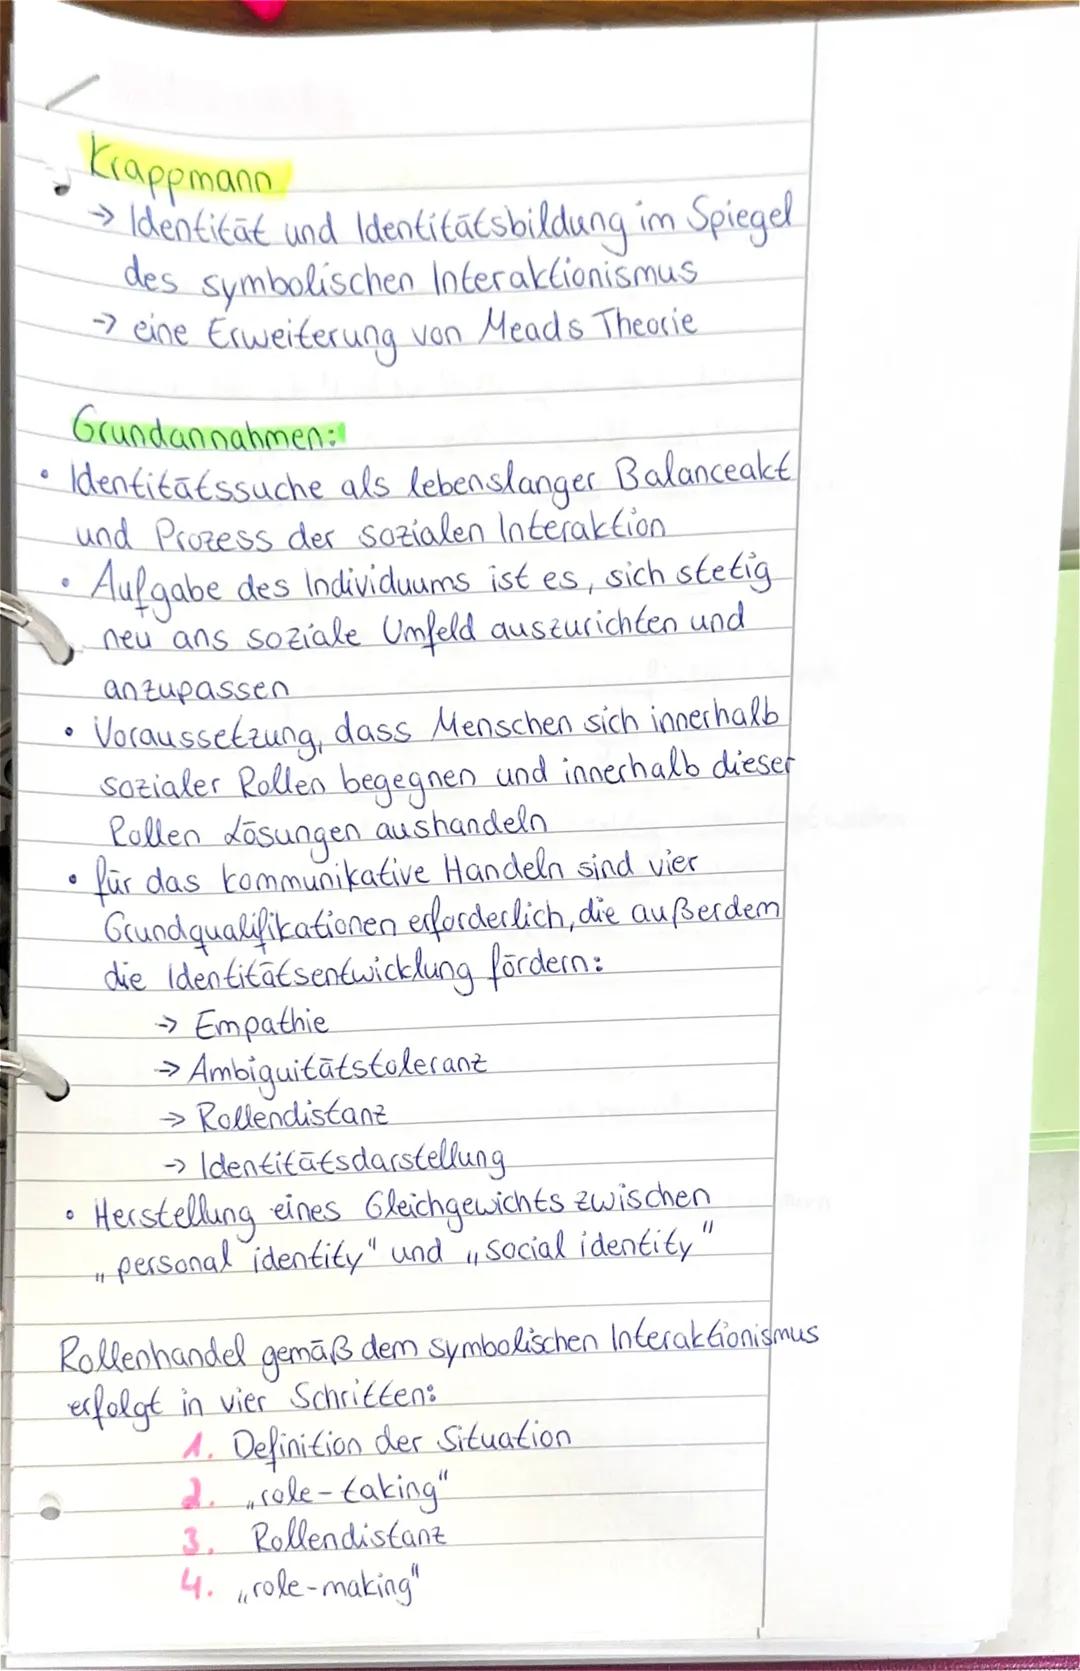 Krappmann
→ Identität und Identitätsbildung im Spiegel
des symbolischen Interaktionismus
→ eine Erweiterung von Meads Theorie
Grundannahmen:
• Identitätssuche als lebenslanger Balanceakt
und Prozess der sozialen Interaktion
• Aufgabe des Individuums ist es, sich stetig
neu ans soziale Umfeld auszurichten und
anzupassen
• Voraussetzung, dass Menschen sich innerhalb
sozialer Rollen begegnen und innerhalb dieser
Rollen Lösungen aushandeln
• für das kommunikative Handeln sind vier
Grundqualifikationen erforderlich, die außerdem
die Identitätsentwicklung fördern:
→ Empathie
→ Ambiguitätstoleranz
→ Rollendistanz
→ Identitätsdarstellung
• Herstellung eines Gleichgewichts zwischen
„personal identity" und „social identity"
Rollenhandel gemäß dem symbolischen Interaktionismus
erfolgt in vier Schritten:
1. Definition der Situation
2. „role-taking"
3. Rollendistanz
4. „role-making"